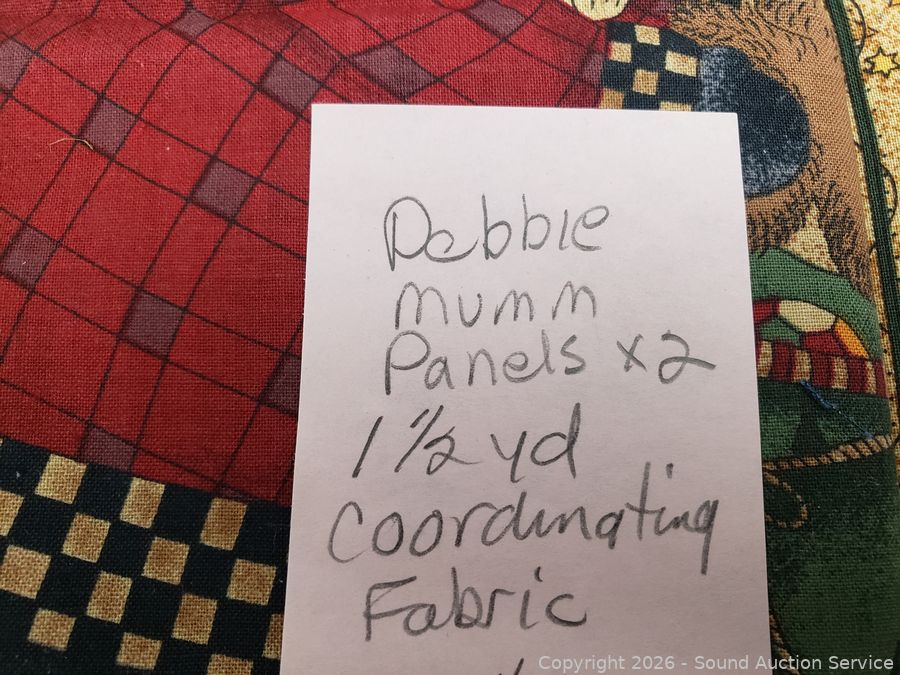 Debbie
mumm
Panels x2
1 1/2 yd
Coordinating
Fabric
Copyright 2026 - Sound Auction Service